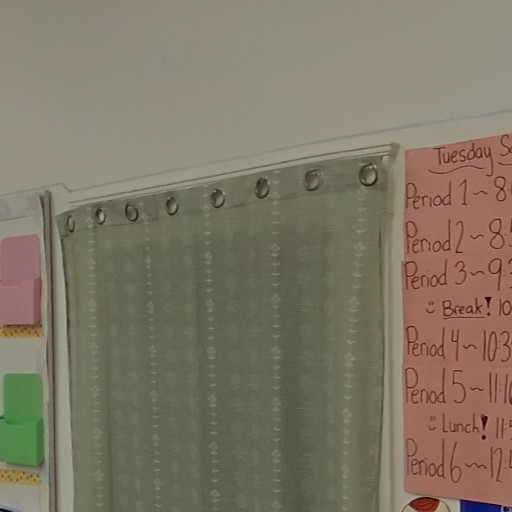 Tuesday
Period 1~ 8
Period 2~ 8:
Period 3~9:
Break! 10
Period 4~ 10:3
Period 5~11:10
Lunch! 11:
Period 6~12: